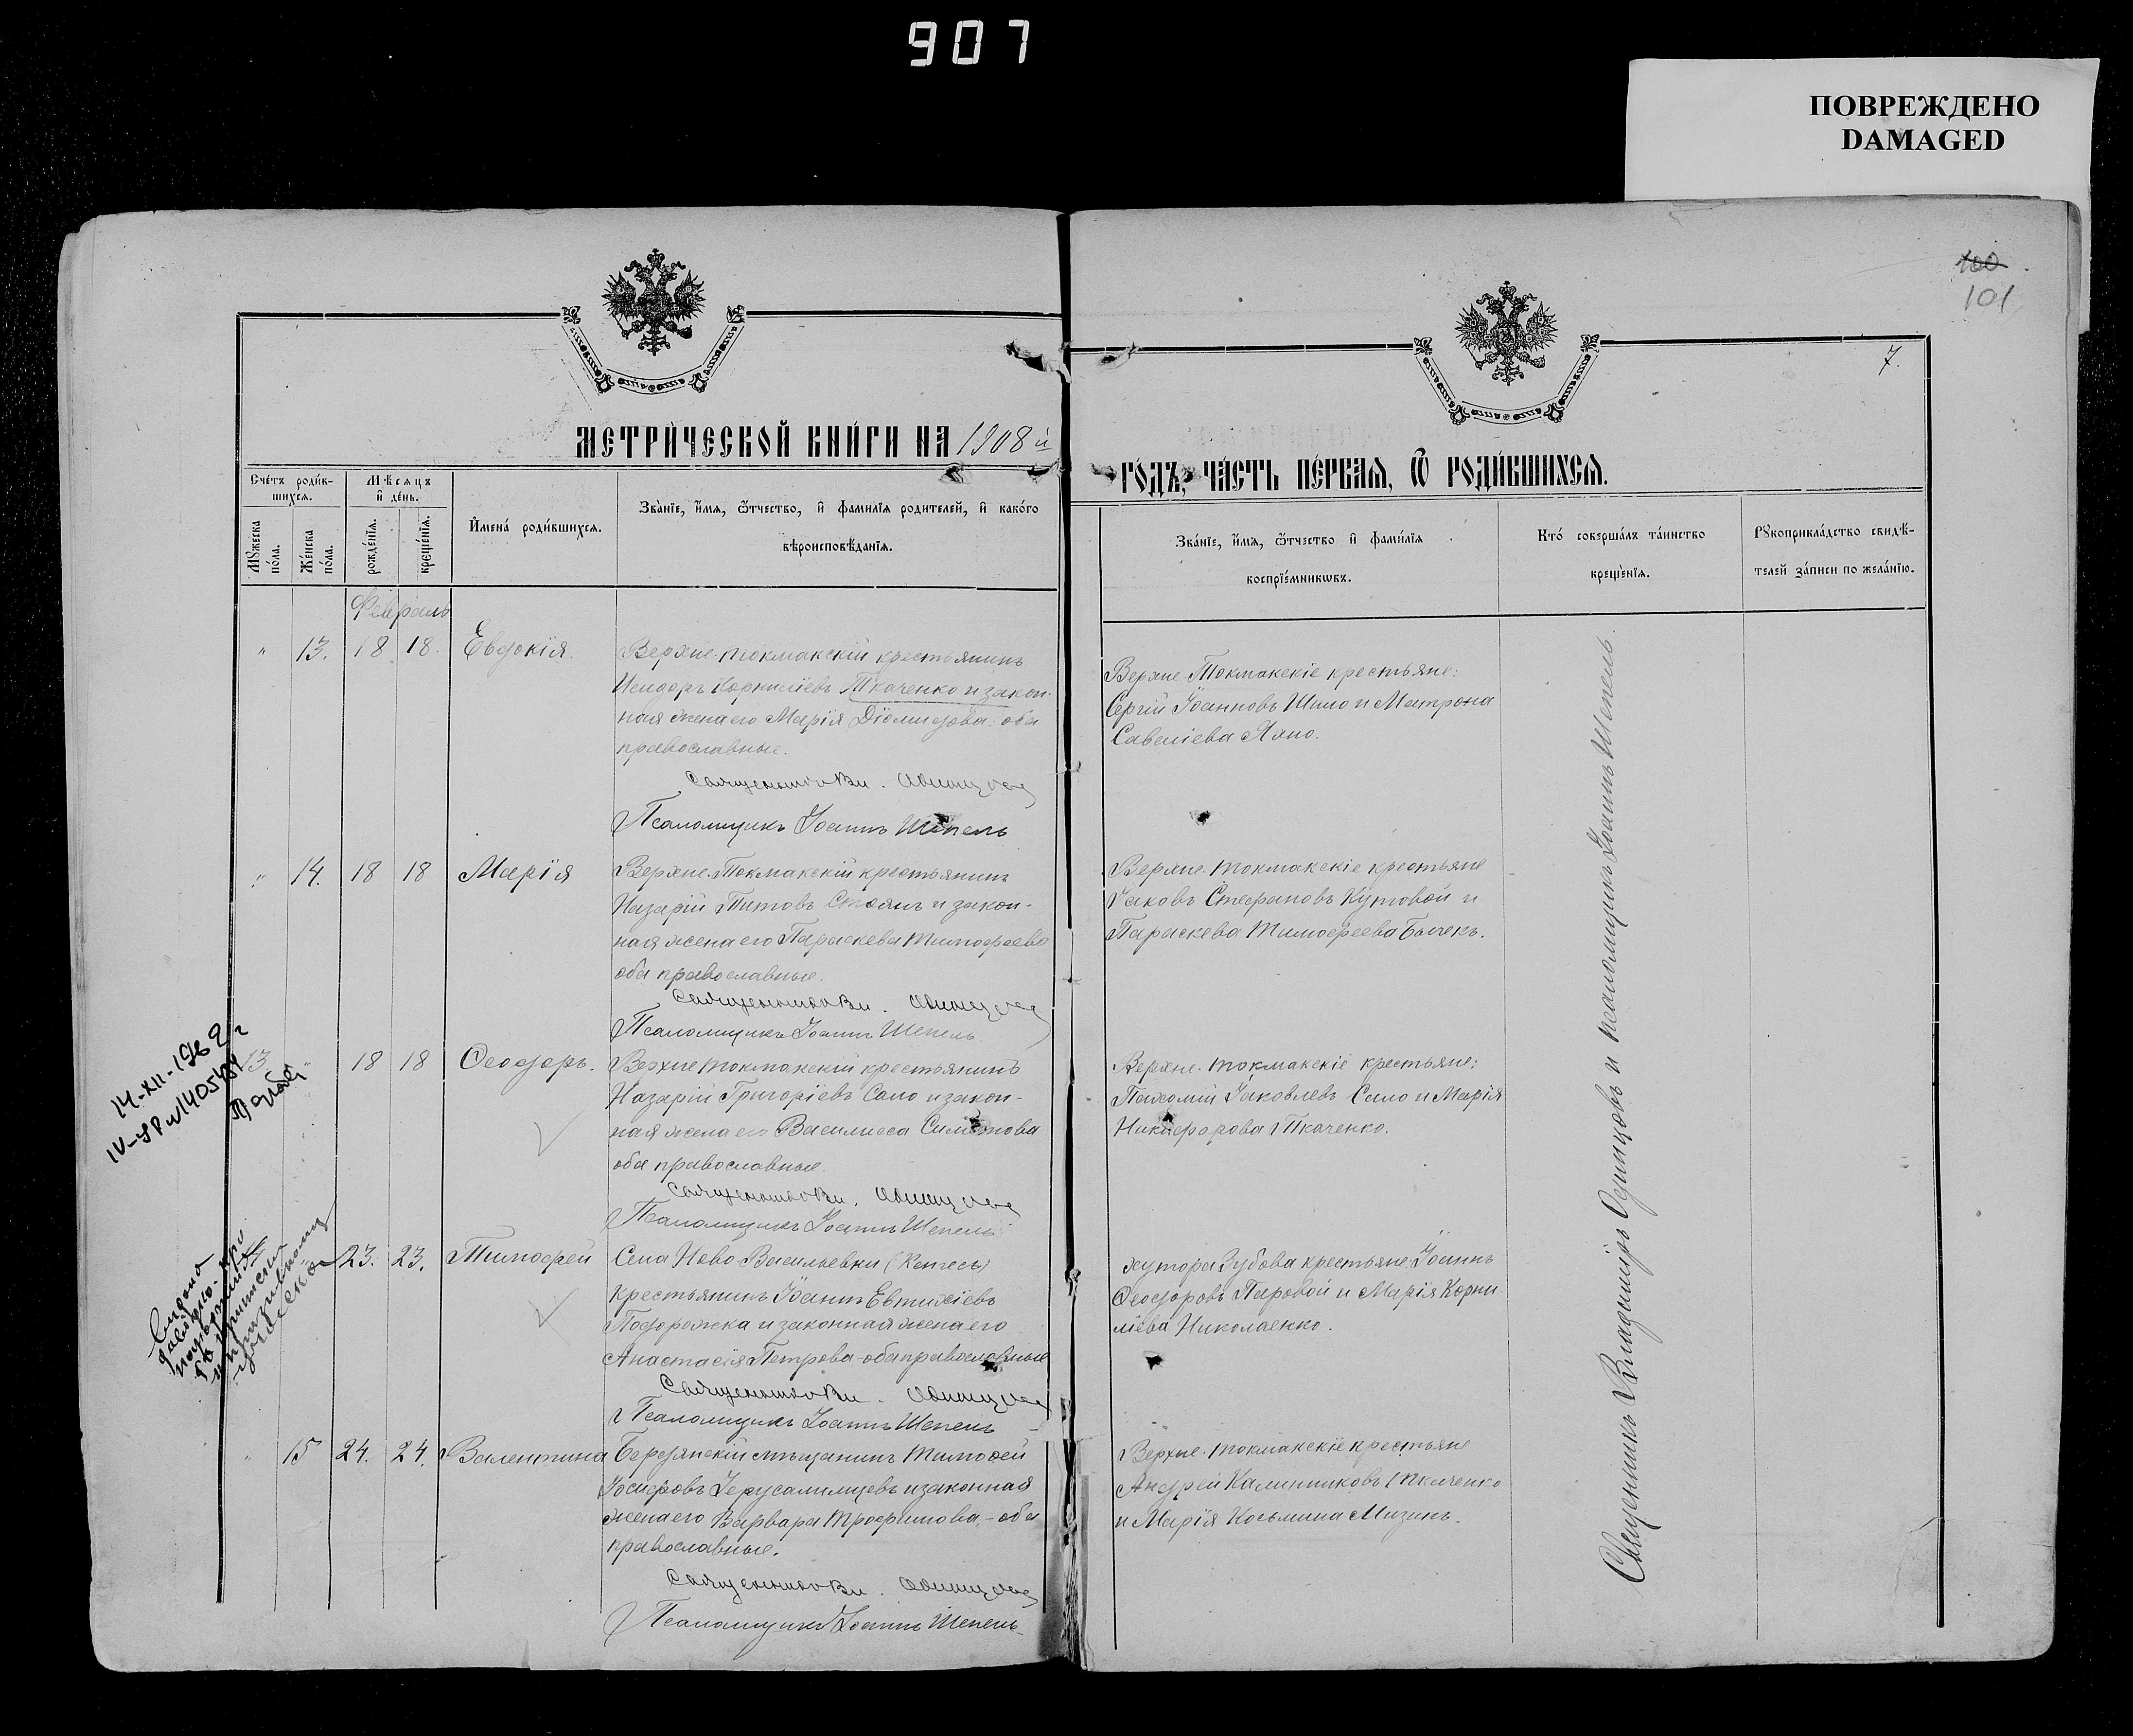 907
ПОВРЕЖДЕНО
DAMAGED
100
101
7.
МЕТРИЧЕСКОЙ КНИГИ НА 1908 й
ГОДЪ, ЧАСТЬ ПЕРВАЯ, Ѿ РОДИВШИХСЯ.
Счетъ родив-
шихся.
Мѣсяцъ
и день.
Мꙋжеска
пола.
Женска
пола.
рожденїя.
крещенїя.
Имена родившихся.
Званїе, имя, ѿтчество, и фамилїя родителей, и какого
вѣроисповѣданїя.
Званїе, имя, ѿтчество и фамилїя
воспрїемникѡвъ.
Кто совершалъ таинство
крещенїя.
Рꙋкоприкладство свидѣ-
телей записи по желанїю.
Февраль
" 13. 18 18. Евдокія.
Верхне-Токмакскій крестьянинъ
Исидоръ Корниліевъ Ткаченко и закон-
ная жена его Марія Діомидова: оба
православные.
Священникъ Вл. Одинцовъ
Псаломщикъ Іоаннъ Шепель
Верхне-Токмакскіе крестьяне:
Сергій Іоанновъ Шило и Матрона
Савеліева Ляхо.
" 14. 18 18 Марія
Верхне-Токмакскій крестьянинъ
Назарій Титовъ Стоянъ и закон-
ная жена его Параскева Тимофеева
оба православные.
Священникъ Вл. Одинцовъ
Псаломщикъ Іоаннъ Шепель
Верхне-Токмакскіе крестьяне
Іаковъ Стефановъ Кутовой и
Параскева Тимофеева Бычекъ.
13 " 18 18 Феодоръ.
Верхне Токмакскій крестьянинъ
Назарій Григоріевъ Сало и закон-
ная жена его Василисса Симонова
оба православные.
Священникъ Вл. Одинцовъ
Псаломщикъ Іоаннъ Шепель
Верхне-Токмакскіе крестьяне:
Пахомій Іаковлевъ Сало и Марія
Никифорова Ткаченко.
14-XII-1962 г
14 " 23. 23. Тимофей
Села Ново-Васильевки (Кенгесъ)
крестьянинъ Іоаннъ Евтихіевъ
Подорожка и законная жена его
Анастасія Петрова - оба православные
Священникъ Вл. Одинцовъ
Псаломщикъ Іоаннъ Шепель
хутора Зубова крестьяне: Іоаннъ
Феодоровъ Паровой и Марія Корни-
ліева Николаенко.
" 15 24. 24. Валентина
Бердянскій мѣщанинъ Тимофей
Іосифовъ Іерусалимцевъ и законная
жена его Варвара Трофимова, - оба
православные.
Священникъ Вл. Одинцовъ
Псаломщикъ Іоаннъ Шепель
Верхне-Токмакскіе крестьяне
Андрей Калинниковъ Ткаченко
и Марія Косьмина Мизинъ.
Священникъ Владиміръ Одинцовъ и псаломщикъ Іоаннъ Шепель.